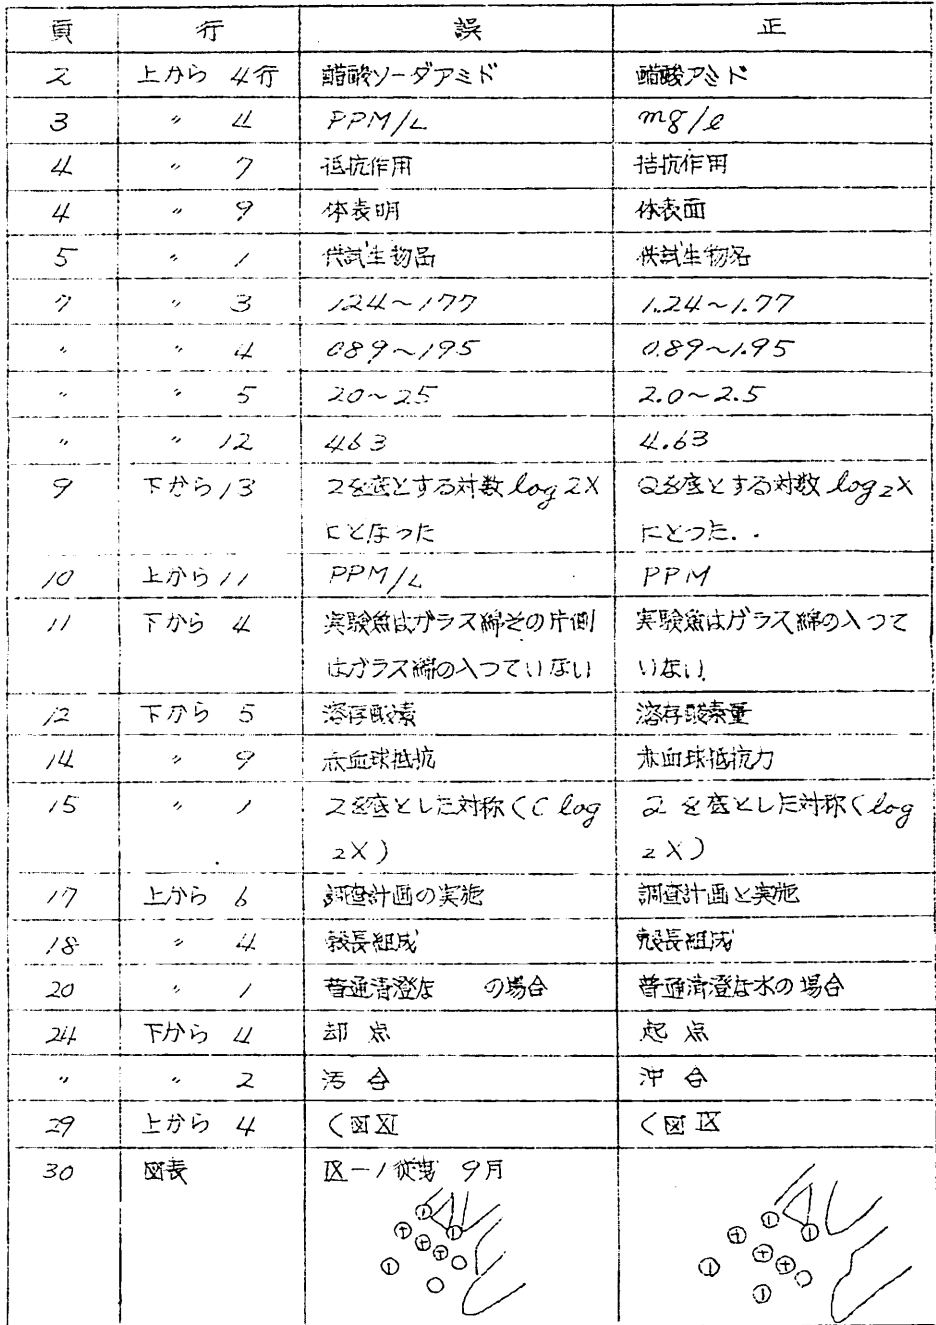 頁 行 誤 正
2 上から 4行 醋酸ソーダアミド 醋酸アミド
3 〃 4 PPM/L mg/l
4 〃 7 抵抗作用 拮抗作用
4 〃 9 体表明 体表面
5 〃 1 供試生物品 供試生物名
7 〃 3 124~177 1.24~1.77
〃 〃 4 089~195 0.89~1.95
〃 〃 5 20~25 2.0~2.5
〃 〃 12 463 4.63
9 下から13 2を底とする対数 log 2X 2を底とする対数 log₂X
にとなつた にとつた..
10 上から11 PPM/L PPM
11 下から 4 実験魚はガラス綿その片側 実験魚はガラス綿の入つて
はガラス綿の入つていない いない
12 下から 5 溶存酸素 溶存酸素量
14 〃 9 赤血球抵抗 赤血球抵抗力
15 〃 1 2を底とした対称く(C log 2を底とした対称く log
2X) 2X)
17 上から 6 調査計画の実施 調査計画と実施
18 〃 4 穀長組成 殻長組成
20 〃 1 普通清澄な の場合 普通清澄な水の場合
24 下から 4 却点 起点
〃 〃 2 汚合 沖合
29 上から 4 〈図XI 〈図IX
30 図表 IX-1 9月